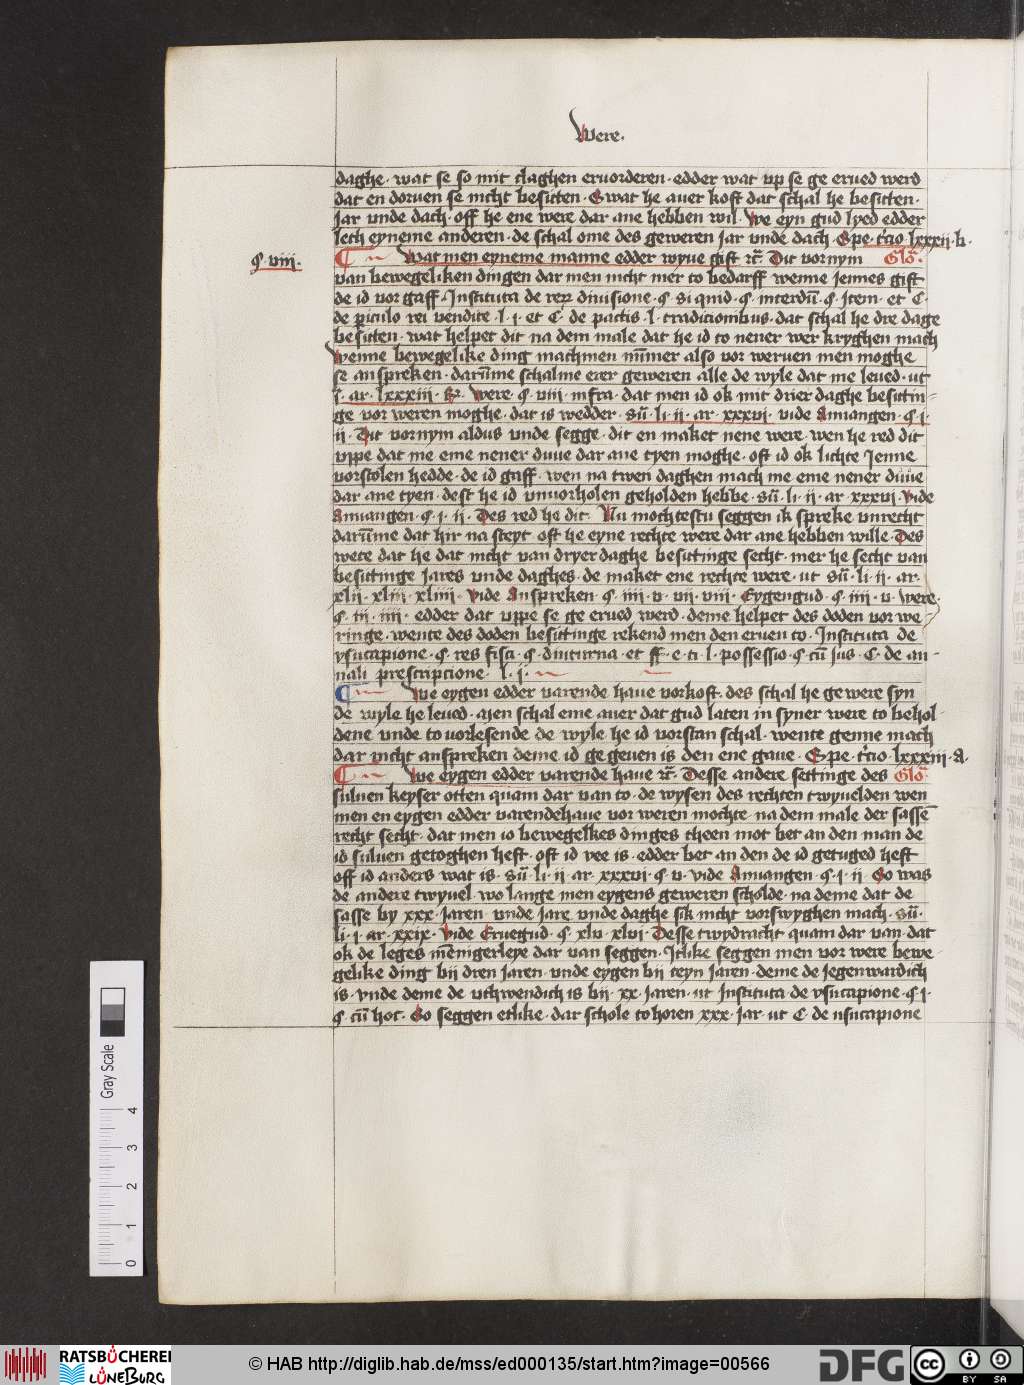 Were.
daghe. wat se so mit claghen eruorderen. edder wat vp se ge erued werd
dat en doruen se nicht besitten. Swat he auer koft dat schal he besitten.
Jar vnde dach. off he ene were dar ane hebben wil. We eyn gud lyed edder
lech eyneme anderen. de schal ome des geweren Jar vnde dach. Spe. tcio. lxxxii. b.
§. viii.
Wat men eyneme manne edder wyue gift rc. Dit vornym Glo.
van bewegeliken dingen dar men nicht mer to bedarff wenne Jennes gift
de id vor gaff. Instituta de rerr diuisione. §. si quid. §. interdu. §. Item. et C.
de piculo rei vendite. l. i. et C. de pactis. l. tradicionibus. dat schal he dre dage
besitten. wat helpet dit na dem male dat he id to nener wer kryghen mach
Wenne bewegelike ding machmen nummer also vor weruen men moghe
se anspreken. darume schalme erer geweren alle de wyle dat me leued. ut
s. ar. lxxxiii. Were. §. viii. infra. dat men id ok mit drier daghe besittin-
ge vor weren moghe. dat is wedder. su. li. ii. ar. xxxvi. vide Anuangen. §. i.
ii. Dit vornym aldus vnde segge. dit en maket nene were. wen he red dit
vppe dat me eme nener duue dar ane tyen moghe. oft id ok lichte Jenne
vorstolen hedde. de id gaff. wen na twen daghen mach me eme nener duue
dar ane tyen. dest he id vnuorholen geholden hebbe. su. li. ii. ar. xxxvi. vide
Anuangen. §. i. ii. Des red he dit. Nu mochtestu seggen ik spreke vnrecht
darume dat hir na steyt oft he eyne rechte were dar ane hebben wille. Des
wete dat he dat nicht van dryer daghe besittinge secht. mer he secht van
besittinge Jares vnde daghes. de maket ene rechte were. ut su. li. ii. ar.
xlii. xliii. xliiii. vide Anspreken. §. iiii. v. vii. viii. Eygengud. §. iiii. v. Were.
§. iii. iiii. edder dat vppe se ge erued werd. deme helpet des doden vor we-
ringe. wente des doden besittinge rekend men den eruen to. Instituta de
vsucapione. §. res fisci. §. diuturna. et ff. e. ti. l. possessio. §. cu Jus. C. de an-
nali prescripcione. l. i.
We eygen edder varende haue vorkoft. des schal he gewere syn
de wyle he leued. aien schal eme auer dat gud laten in syner were to behol-
dene vnde to vorlesende de wyle he id vorstan schal. wente genne mach
dar nicht anspreken deme id ge geuen is den ene gaue. Spe. tcio. lxxxiii. a.
We eygen edder varende haue rc. Desse andere settinge des Glo.
suluen keyser otten quam dar van to. de wysen des rechten twyuelden wen
men en eygen edder varendehaue vor weren mochte. na dem male der sassen
recht secht. dat men io bewegelkes dinges theen mot bet an den man de
id suluen getoghen heft. oft id vee is. edder bet an den de id getuged heft
off id anders wat is. su. li. ii. ar. xxxvi. §. v. vide Anuangen. §. i. ii. So was
de andere twyuel. wo lange men eygens geweren scholde. na deme dat de
sasse by xxx. Jaren. vnde Jare vnde daghe sik nicht vorswyghen mach. su.
li. i. ar. xxix. vide Eruegud. §. xlv. xlvi. Desse twydracht quam dar van. dat
ok de leges menigerleye dar van seggen. Itlike seggen men vor were bewe-
gelike ding bij dren Jaren. vnde eygen bij teyn Jaren. deme de Jegenwardich
is. vnde deme de vthwendich is bij. xx. Jaren. ut Instituta de vsucapione. §. i.
§. cu hoc. So seggen etlike. dar schole to horen xxx. Jar. ut C. de usucapione
Gray Scale
0 1 2 3 4
RATSBÜCHEREI LÜNEBURG
© HAB http://diglib.hab.de/mss/ed000135/start.htm?image=00566
DFG
cc BY SA